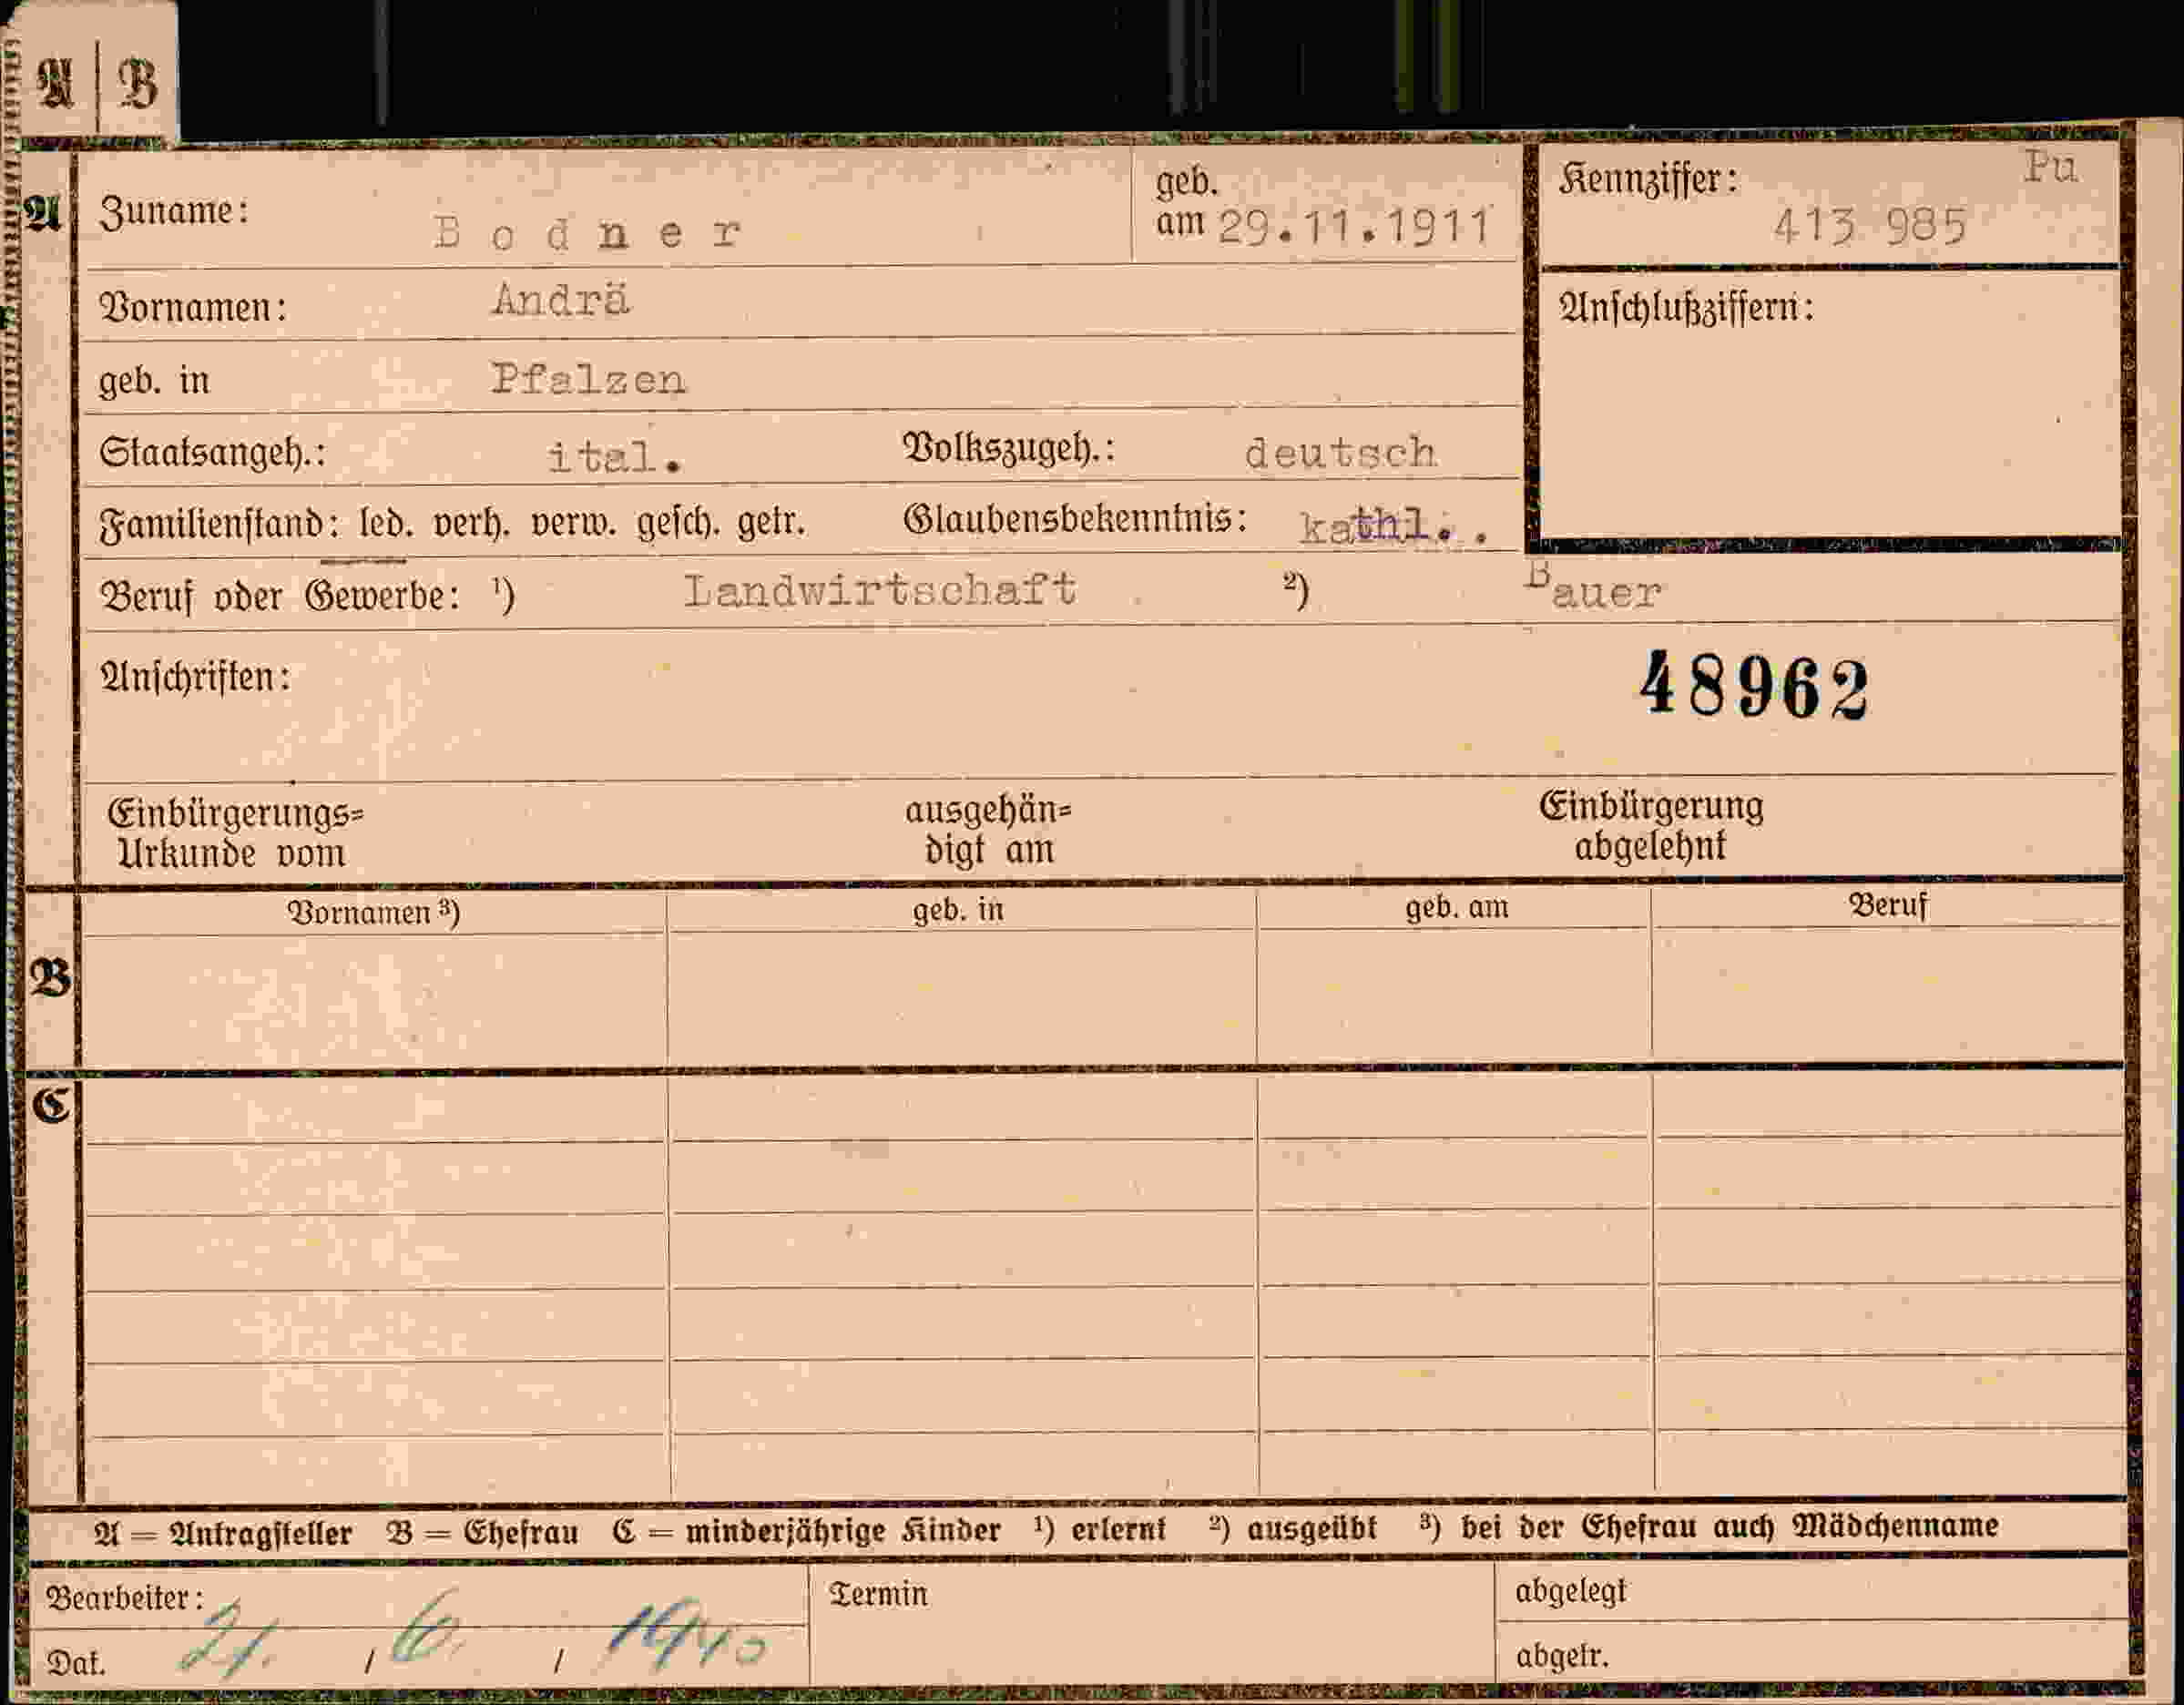 A | B
A Zuname: Bodner geb. am 29.11.1911 Kennziffer: Pu 413 985
Vornamen: Andrä Anschlußziffern:
geb. in Pfalzen
Staatsangeh.: ital. Volkszugeh.: deutsch
Familienstand: led. verh. verw. gesch. getr. Glaubensbekenntnis: kathl..
Beruf oder Gewerbe: ¹) Landwirtschaft ²) Bauer
Anschriften: 48962
Einbürgerungs= ausgehän= Einbürgerung
Urkunde vom digt am abgelehnt
Vornamen ³) geb. in geb. am Beruf
B
C
A = Antragsteller B = Ehefrau C = minderjährige Kinder ¹) erlernt ²) ausgeübt ³) bei der Ehefrau auch Mädchenname
Bearbeiter: Termin abgelegt
Dat. 21. / 6. / 1940 abgetr.